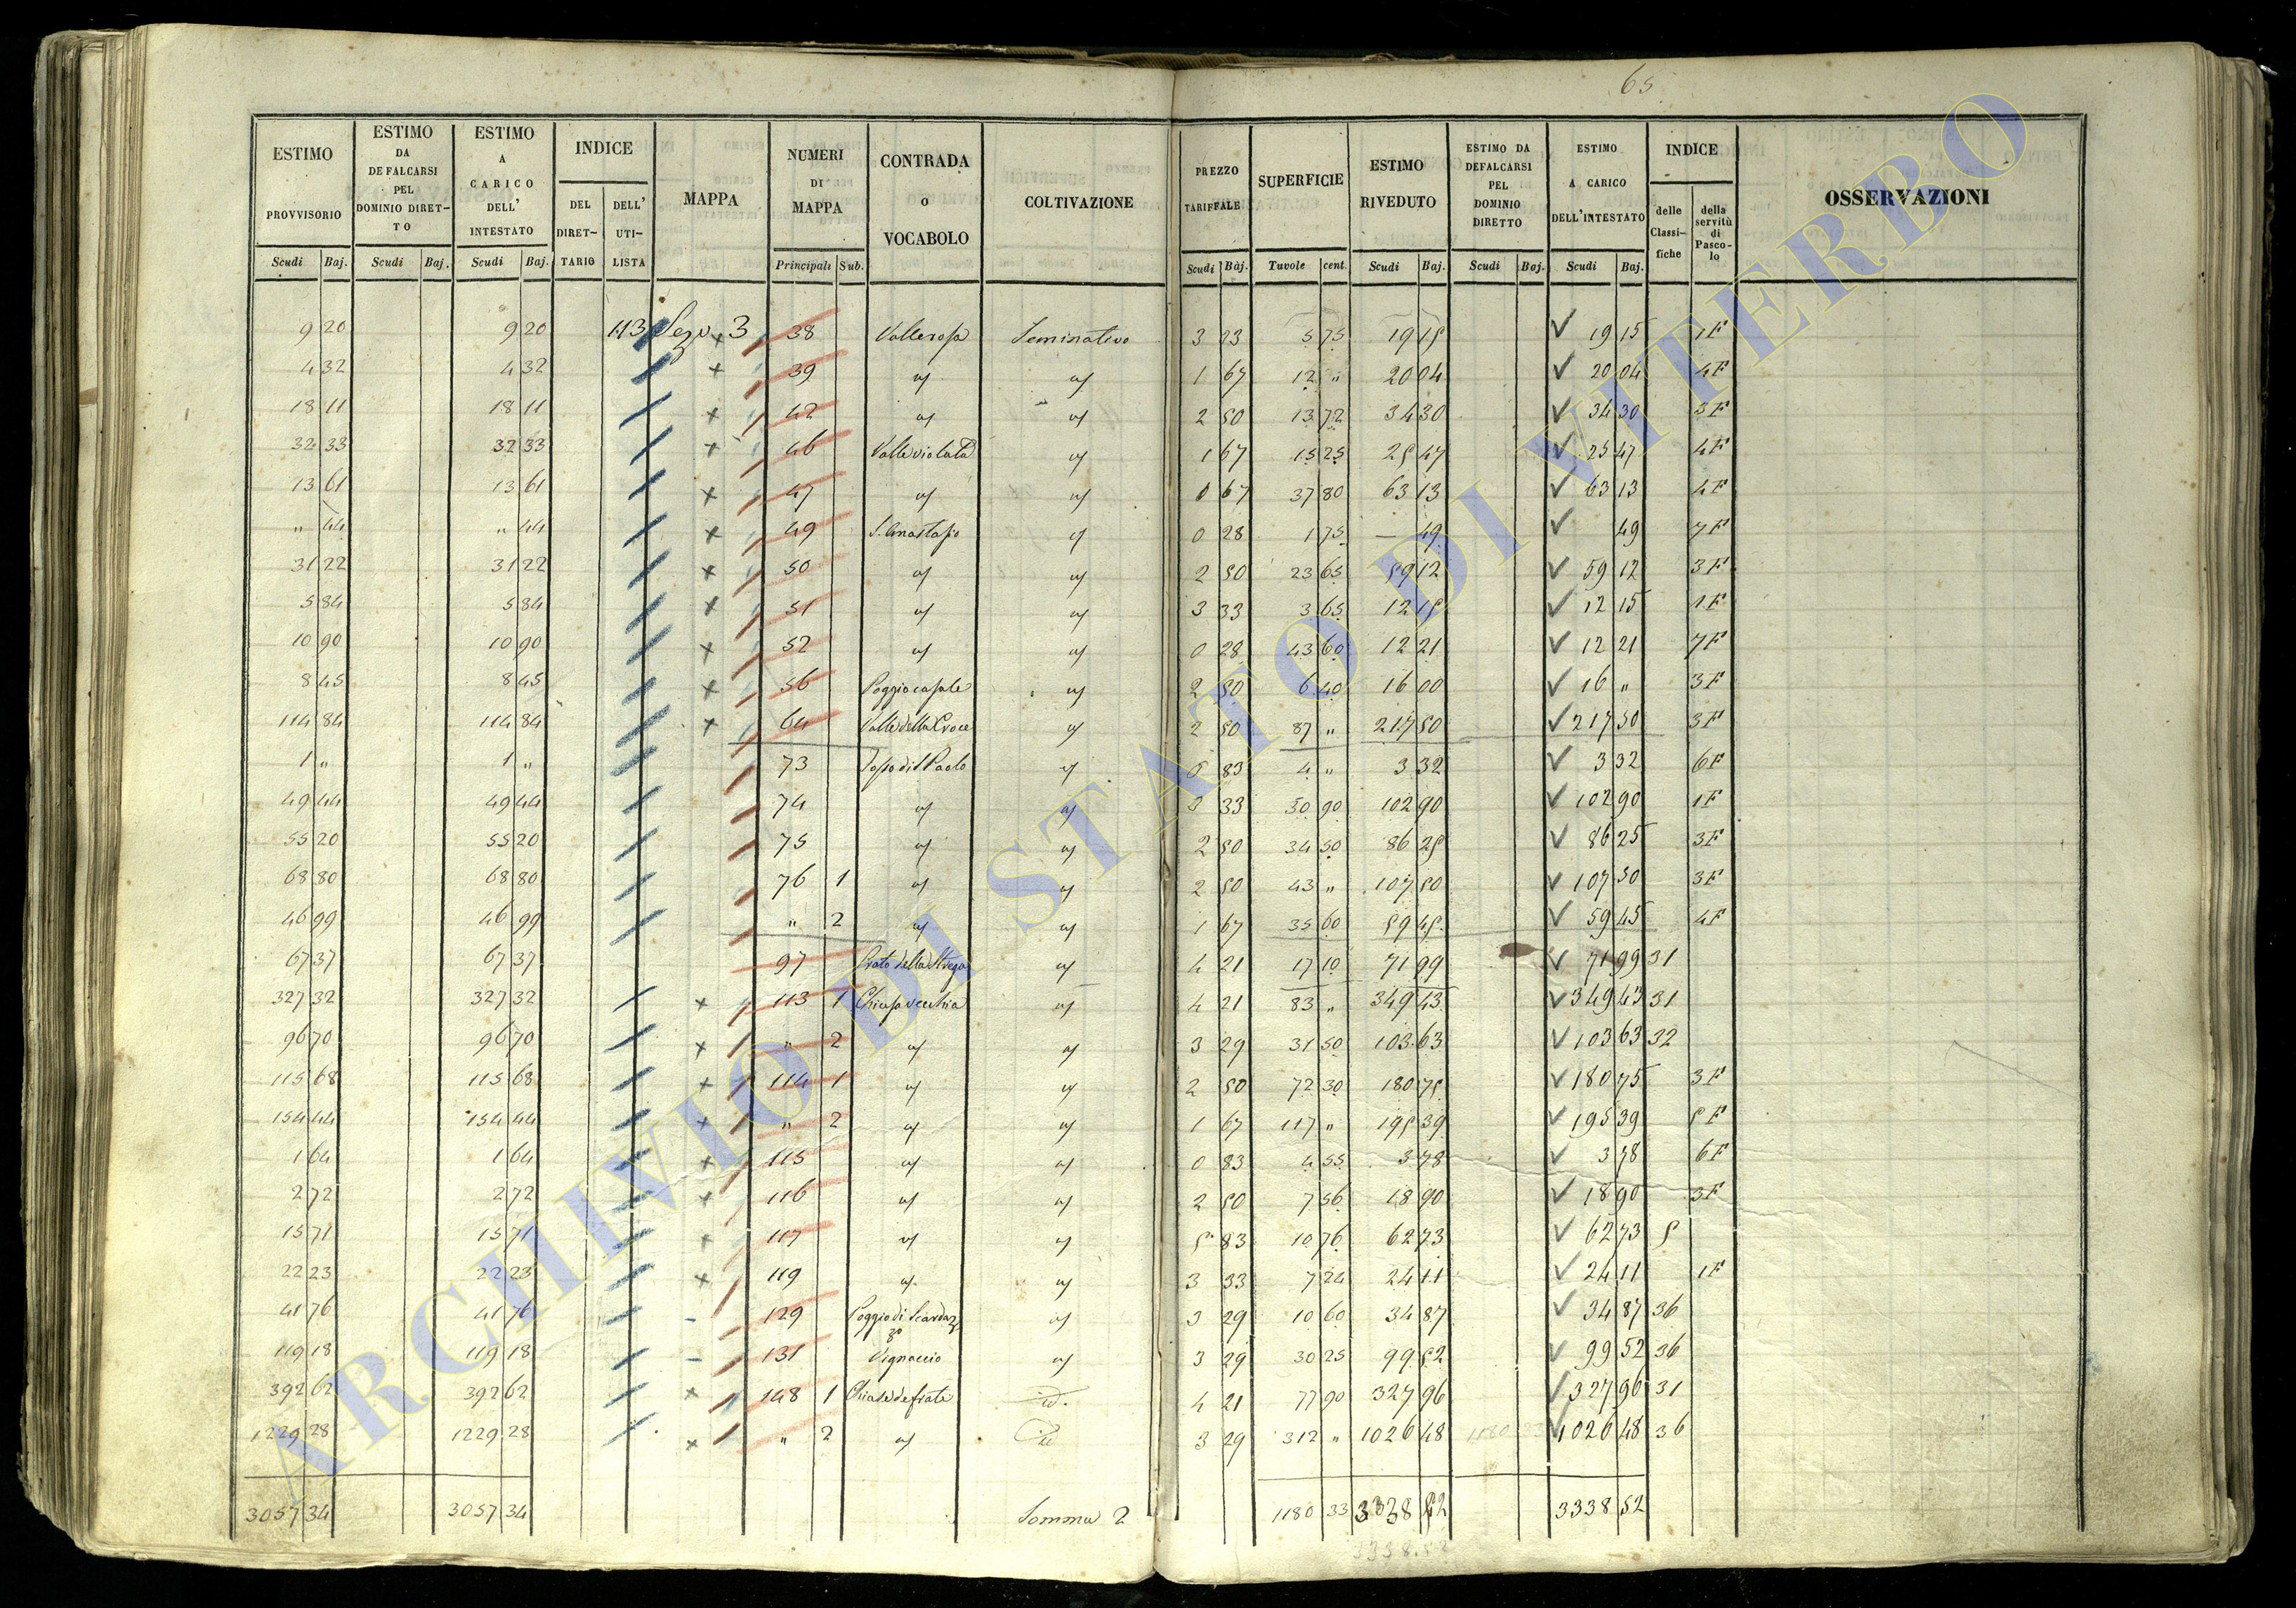 65
ESTIMO PROVVISORIO | ESTIMO DA DEFALCARSI PEL DOMINIO DIRETTO | ESTIMO A CARICO DELL' INTESTATO | INDICE | MAPPA | NUMERI DI MAPPA | CONTRADA O VOCABOLO | COLTIVAZIONE | PREZZO TARIFFALE | SUPERFICIE | ESTIMO RIVEDUTO | ESTIMO DA DEFALCARSI PEL DOMINIO DIRETTO | ESTIMO A CARICO DELL'INTESTATO | INDICE | OSSERVAZIONI
DEL DIRETTARIO | DELL' UTILISTA | delle Classifiche | della servitù di Pascolo
Scudi | Baj. | Scudi | Baj. | Scudi | Baj. | Principali | Sub. | Scudi | Baj. | Tavole | cent. | Scudi | Baj. | Scudi | Baj. | Scudi | Baj.
9 20 | 9 20 | 113 | Sez. 3 | 38 | Vallerosa | Seminativo | 3 33 | 5 75 | 19 15 | 19 15 | 1F
4 32 | 4 32 | 39 | " | " | 1 67 | 12 " | 20 04 | 20 04 | 4F
18 11 | 18 11 | 42 | " | " | 2 50 | 13 72 | 34 30 | 34 30 | 3F
32 33 | 32 33 | 46 | Valleviolata | " | 1 67 | 15 25 | 25 47 | 25 47 | 4F
13 61 | 13 61 | 47 | " | " | 67 | 37 80 | 63 13 | 63 13 | 4F
" 44 | " 44 | 49 | S. Anastasio | " | 0 28 | 1 75 | — 49 | 49 | 7F
31 22 | 31 22 | 50 | " | " | 2 50 | 23 65 | 59 12 | 59 12 | 3F
5 84 | 5 84 | 51 | " | " | 3 33 | 3 65 | 12 15 | 12 15 | 1F
10 90 | 10 90 | 52 | " | " | 0 28 | 43 60 | 12 21 | 12 21 | 7F
8 45 | 8 45 | 56 | Poggiocasale | " | 2 50 | 6 40 | 16 00 | 16 " | 3F
114 84 | 114 84 | 64 | Valle della Croce | " | 2 50 | 87 " | 217 50 | 217 50 | 3F
1 " | 1 " | 73 | " | 0 83 | 4 " | 3 32 | 3 32 | 6F
49 44 | 49 44 | 74 | " | " | 3 33 | 30 90 | 102 90 | 102 90 | 1F
55 20 | 55 20 | 75 | " | " | 2 50 | 34 50 | 86 25 | 86 25 | 3F
68 80 | 68 80 | 76 1 | " | " | 2 50 | 43 " | 107 50 | 107 50 | 3F
46 99 | 46 99 | " 2 | " | " | 1 67 | 35 60 | 59 45 | 59 45 | 4F
67 37 | 67 37 | 97 | Prato della | " | 4 21 | 17 10 | 71 99 | 71 99 | 31
327 32 | 327 32 | 113 1 | Chiusa vecchia | " | 4 21 | 83 " | 349 43 | 349 43 | 31
96 70 | 96 70 | " 2 | " | " | 3 29 | 31 50 | 103 63 | 103 63 | 32
115 68 | 115 68 | 114 1 | " | " | 2 50 | 72 30 | 180 75 | 180 75 | 3F
154 44 | 154 44 | " 2 | " | " | 1 67 | 117 " | 195 39 | 195 39 | 5F
1 64 | 1 64 | 115 | " | " | 0 83 | 4 55 | 3 78 | 3 78 | 6F
2 72 | 2 72 | 116 | " | " | 2 50 | 7 56 | 18 90 | 18 90 | 3F
15 71 | 15 71 | 117 | " | " | 5 83 | 10 76 | 62 73 | 62 73 | 5
22 23 | 22 23 | 119 | " | " | 3 33 | 7 24 | 24 11 | 24 11 | 1F
41 76 | 41 76 | 129 | Poggio di Scardazzo | " | 3 29 | 10 60 | 34 87 | 34 87 | 36
119 18 | 119 18 | 131 | Vignaccio | " | 3 29 | 30 25 | 99 52 | 99 52 | 36
392 62 | 392 62 | 148 1 | id. | 4 21 | 77 90 | 327 96 | 327 96 | 31
1229 28 | 1229 28 | " 2 | " | id | 3 29 | 312 " | 1026 48 | 1026 48 | 36
3057 34 | 3057 34 | Somma 2 | 1180 33 | 3338 52 | 3338 52
3338.52
ARCHIVIO DI STATO DI VITERBO